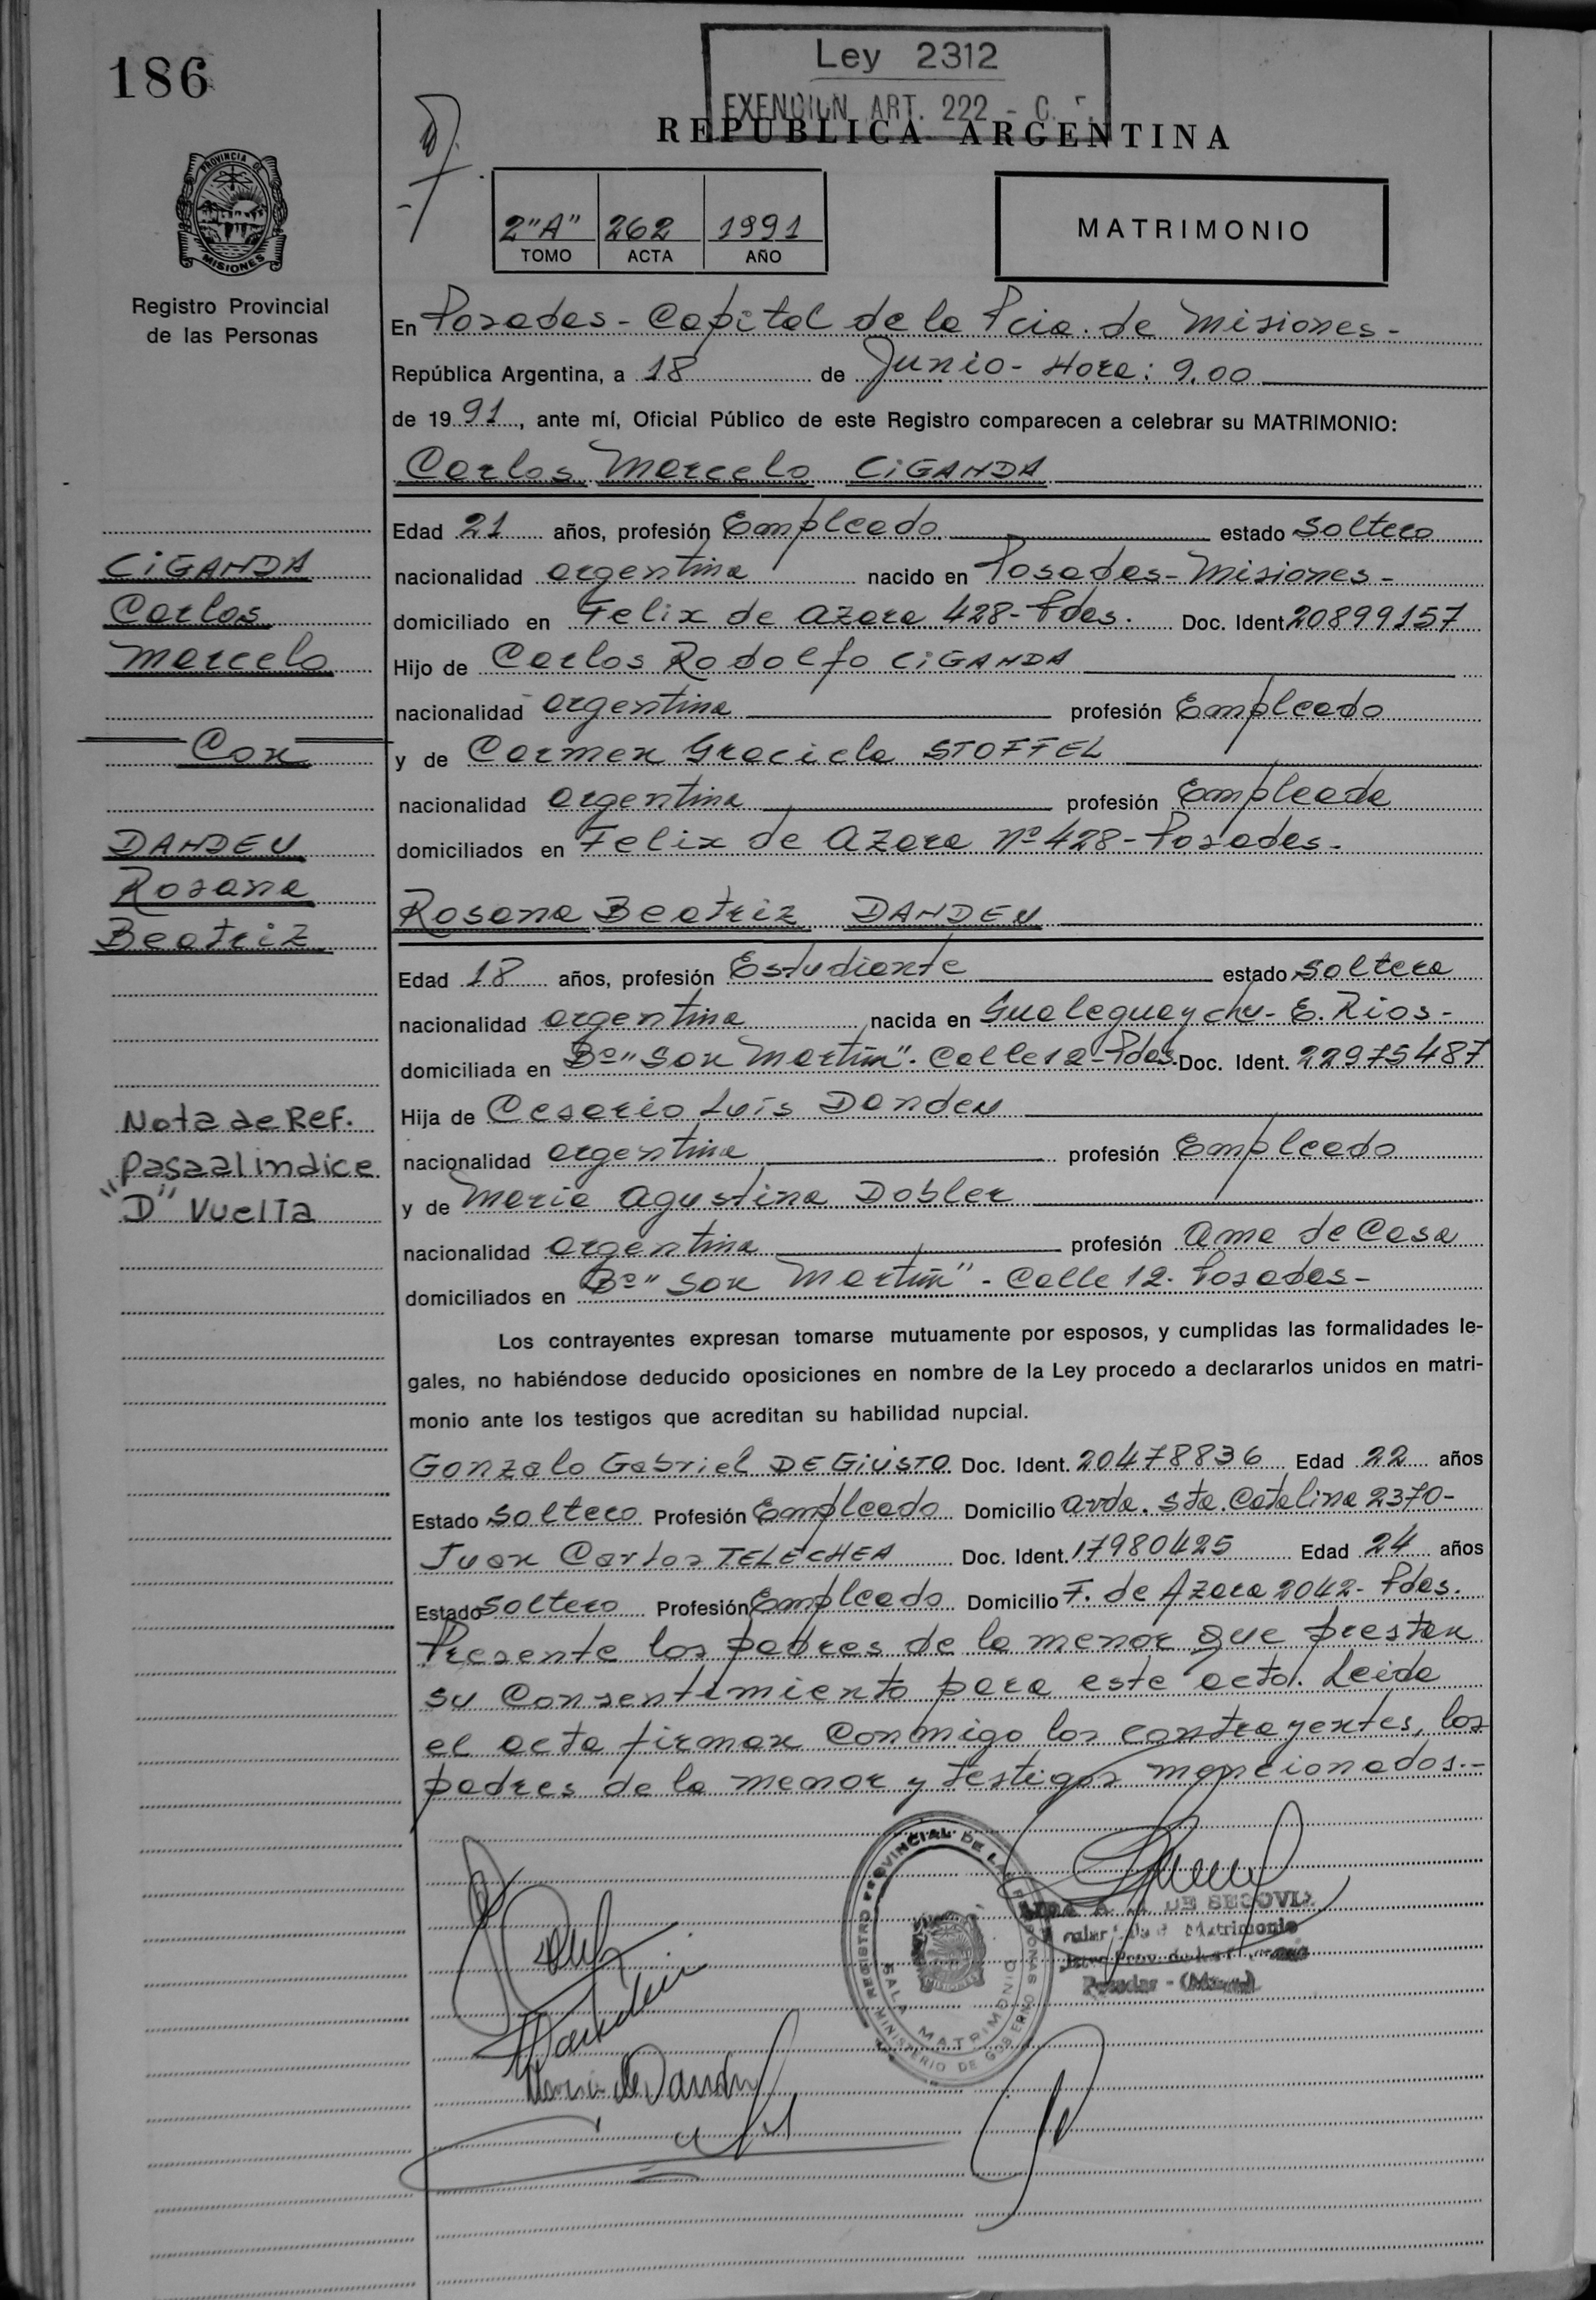 186
Ley 2312
EXENCION ART. 222 - C.
REPUBLICA ARGENTINA
PROVINCIA DE
MISIONES
Registro Provincial
de las Personas
2"A" 262 1991
TOMO ACTA AÑO
MATRIMONIO
En Posadas - Capital de la Pcia. de Misiones -
República Argentina, a 18 de Junio - Hora: 9.00
de 19 91, ante mí, Oficial Público de este Registro comparecen a celebrar su MATRIMONIO:
Carlos Marcelo CiGANDA
Edad 21 años, profesión Empleado estado Soltero
nacionalidad argentina nacido en Posadas - Misiones -
domiciliado en Felix de Azara 428 - Pdas. Doc. Ident 20899157
Hijo de Carlos Rodolfo CiGANDA
nacionalidad argentina profesión Empleado
y de Carmen Graciela STOFFEL
nacionalidad argentina profesión Empleada
domiciliados en Felix de Azara Nº 428 - Posadas -
Rosana Beatriz DANDEU
Edad 18 años, profesión Estudiante estado soltera
nacionalidad argentina nacida en Gualeguaychu - E. Rios -
domiciliada en Bº "San Martín" - Calle 12 - Pdas. Doc. Ident. 22975487
Hija de Cesareo Luis Dandeu
nacionalidad argentina profesión Empleado
y de Maria Agustina Dobler
nacionalidad argentina profesión ama de Casa
domiciliados en Bº "San Martín" - Calle 12 - Posadas -
CiGANDA
Carlos
Marcelo
Con
DANDEU
Rosana
Beatriz
Nota de Ref.
Pasa al indice
"D" Vuelta
Los contrayentes expresan tomarse mutuamente por esposos, y cumplidas las formalidades le-
gales, no habiéndose deducido oposiciones en nombre de la Ley procedo a declararlos unidos en matri-
monio ante los testigos que acreditan su habilidad nupcial.
Gonzalo Gabriel DE GiUSTO Doc. Ident. 20478836 Edad 22 años
Estado soltero Profesión Empleado Domicilio avda. Sta. Catalina 2370 -
Juan Carlos TELECHEA Doc. Ident. 17980425 Edad 24 años
Estado soltero Profesión Empleado Domicilio F. de Azara 2042 - Pdas.
Presente los padres de la menor que prestan
su Consentimiento para este acto. Leida
el acta firman Conmigo los contrayentes, los
padres de la menor y testigos mencionados.-
REGISTRO PROVINCIAL DE LAS PERSONAS
SALA MATRIMONIO
MINISTERIO DE GOBIERNO
DE SEGOVIA
Matrimonio
Posadas - (Mnes)